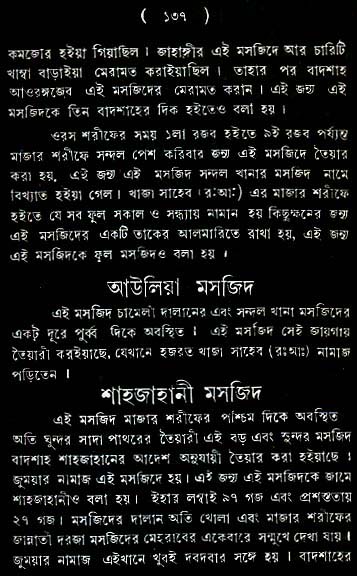 ( ১৩৭ )
কমজোর হইয়া গিয়াছিল। জাহাঙ্গীর এই মসজিদে আর চারিটি
খাম্বা বাড়াইয়া মেরামত করাইয়াছিল। তাহার পর বাদশাহ
আওরঙ্গজেব এই মসজিদের মেরামত করান। এই জন্য এই
মসজিদকে তিন বাদশাহের দিক হইতেও বলা হয়।
ওরস শরীফের সময় ১লা রজব হইতে ৯ই রজব পর্য্যন্ত
মাজার শরীফে সন্দল পেশ করিবার জন্য এই মসজিদে তৈয়ার
করা হয়, এই জন্য এই মসজিদ সন্দল খানার মসজিদ নামে
বিখ্যাত হইয়া গেল। খাজা সাহেব (রঃআঃ) এর মাজার শরীফে
হইতে যে সব ফুল সকাল ও সন্ধ্যায় নামান হয় কিছুক্ষনের জন্য
এই মসজিদের একটি তাকের আলমারিতে রাখা হয়, এই জন্য
এই মসজিদকে ফুল মসজিদও বলা হয়।
আউলিয়া মসজিদ
এই মসজিদ চামেলী দালানের এবং সন্দল খানা মসজিদের
একটু দূরে পুর্ব্ব দিকে অবস্থিত। এই মসজিদ সেই জায়গায়
তৈয়ারী করইয়াছে, যেখানে হজরত খাজা সাহেব (রঃআঃ) নামাজ
পড়িতেন।
শাহজাহানী মসজিদ
এই মসজিদ মাজার শরীফের পশ্চিম দিকে অবস্থিত
অতি সুন্দর সাদা পাথরের তৈয়ারী এই বড় এবং সুন্দর মসজিদ
বাদশাহ শাহজাহানের আদেশ অনুযায়ী তৈয়ার করা হইয়াছে।
জুময়ার নামাজ এই মসজিদে হয়। এই জন্য এই মসজিদকে জামে
শাহজাহানীও বলা হয়। ইহার লম্বাই ৯৭ গজ এবং প্রশস্ততায়
২৭ গজ। মসজিদের দালান অতি খোলা এবং মাজার শরীফের
জান্নাতী দরজা মসজিদের মেহরাবের একেবারে সন্মুখে দেখা যায়।
জুময়ার নামাজ এইখানে খুবই দবদবার সঙ্গে হয়। বাদশাহের